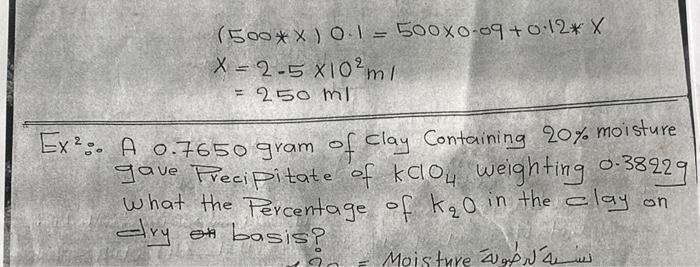 (500*X) 0.1 = 500X0.09+0.12* X
X = 2-5 X10² ml
= 250 ml
Ex²: A 0.7650 gram of clay Containing 20% moisture
gave Precipitate of kClO4 weighting 0.3822g
what the Percentage of K2O in the clay on
dry basis?
= Moisture نسبة الرطوبة